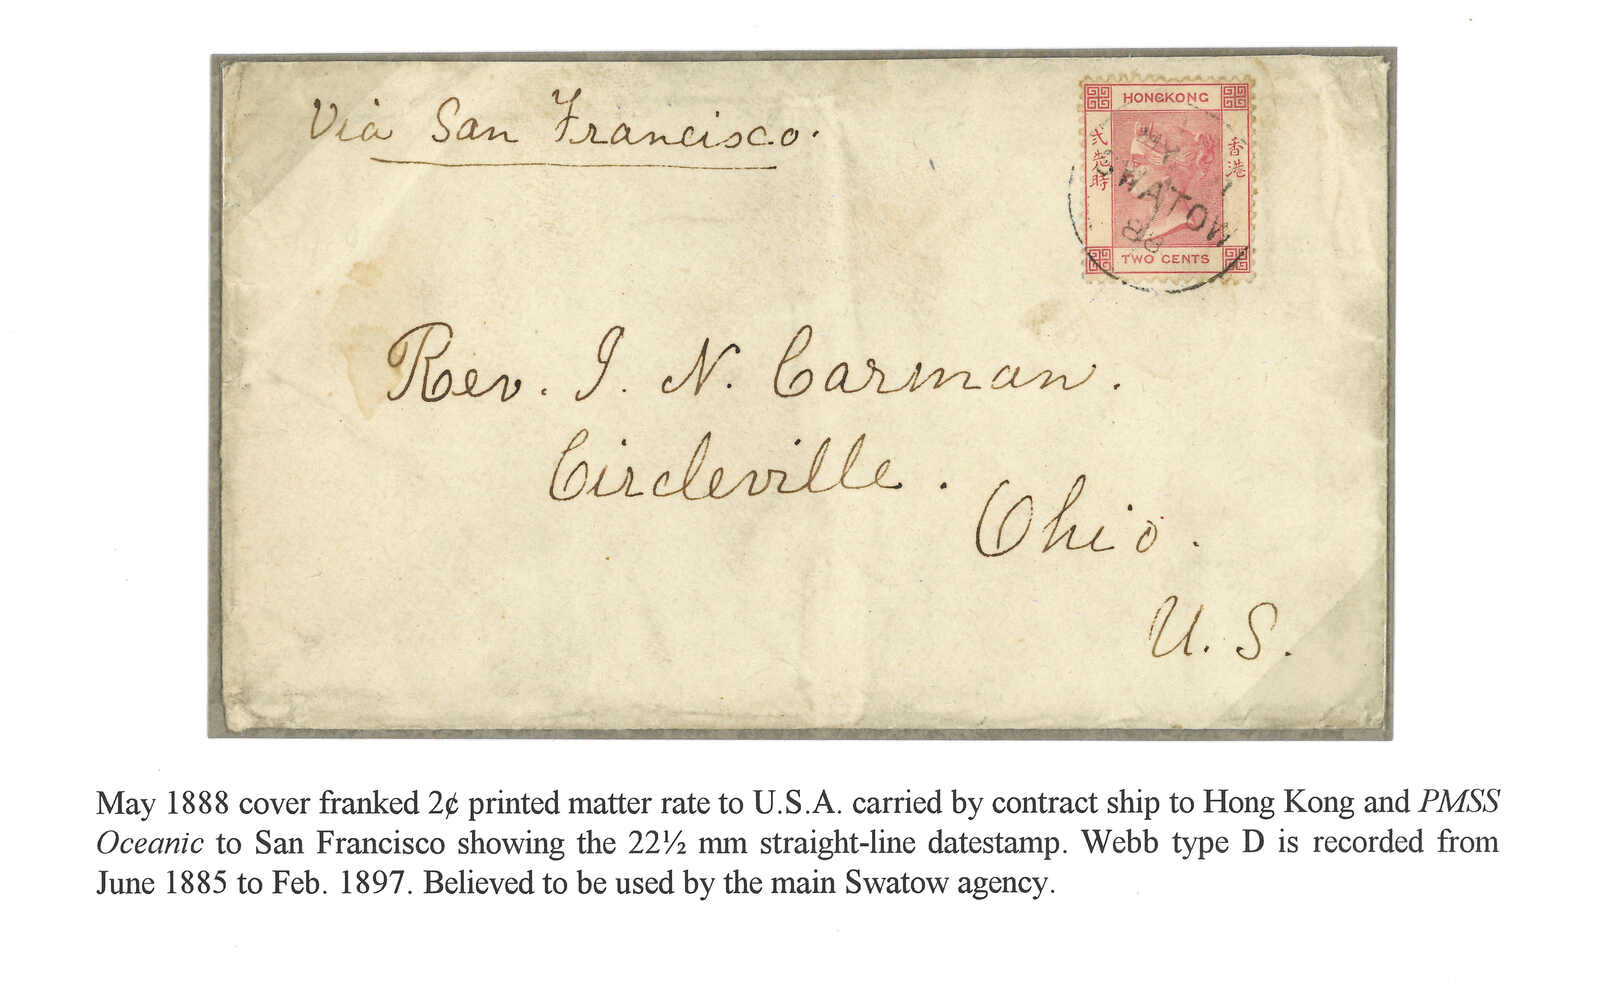 Via San Francisco.
HONGKONG
香港
SWATOW
88
TWO CENTS
Rev. I. N. Carman.
Circleville.
Ohio.
U. S.
May 1888 cover franked 2¢ printed matter rate to U.S.A. carried by contract ship to Hong Kong and PMSS
Oceanic to San Francisco showing the 22½ mm straight-line datestamp. Webb type D is recorded from
June 1885 to Feb. 1897. Believed to be used by the main Swatow agency.